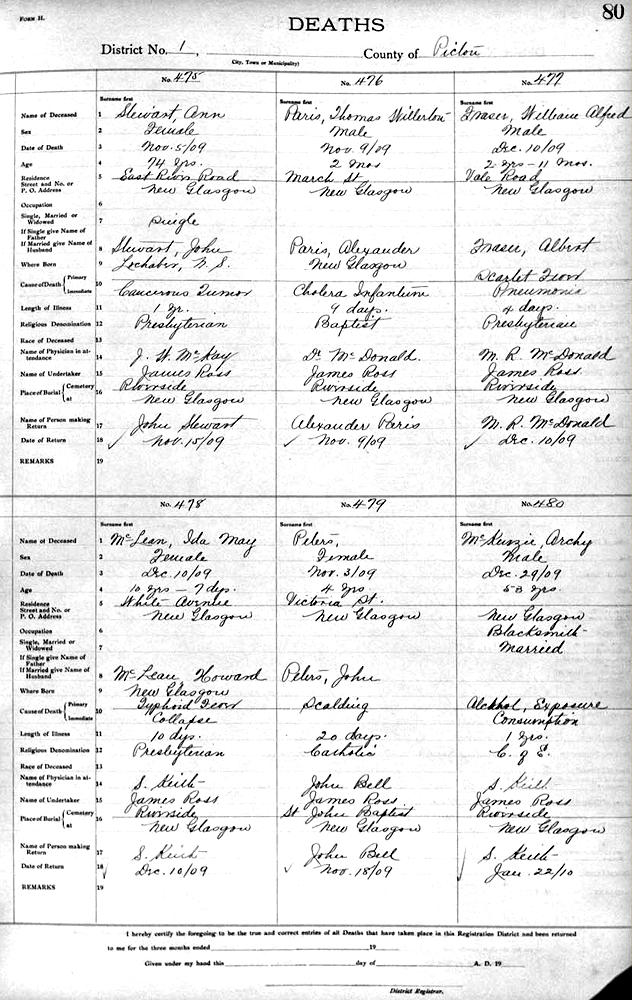 FORM H.
80
DEATHS
District No. 1, County of Pictou
City, Town or Municipality)
No. 475 No. 476 No. 477
Surname first Surname first Surname first
Name of Deceased 1 Stewart, Ann Paris, Thomas Willerton Fraser, William Alfred
Sex 2 Female Male Male
Date of Death 3 Nov. 5/09 Nov. 9/09 Dec. 10/09
Age 4 74 yrs. 2 mos 2 yrs - 11 mos.
Residence 5 East River Road March St Vale Road
Street and No. or
P. O. Address New Glasgow New Glasgow New Glasgow
Occupation 6
Single, Married or
Widowed 7 Single
If Single give Name of
Father
If Married give Name of
Husband 8 Stewart, John Paris, Alexander Fraser, Albert
Where Born 9 Lochaber, N.S. New Glasgow
Cause of Death Primary 10 Scarlet Fever
Immediate Cancerous Tumor Cholera Infantum Pneumonia
Length of Illness 11 1 yr. 9 days. 4 days.
Religious Denomination 12 Presbyterian Baptist Presbyterian
Race of Deceased 13
Name of Physician in at-
tendance 14 J. W. McKay Dr McDonald. M. R. McDonald
Name of Undertaker 15 James Ross James Ross James Ross.
Place of Burial Cemetery 16 Riverside Riverside Riverside
at New Glasgow New Glasgow New Glasgow
Name of Person making
Return 17 John Stewart Alexander Paris M. R. McDonald
Date of Return 18 Nov. 15/09 Nov. 9/09 Dec. 10/09
REMARKS 19
No. 478 No. 479 No. 480
Surname first Surname first Surname first
Name of Deceased 1 McLean, Ida May Peters, McKenzie, Archy
Sex 2 Female Female Male
Date of Death 3 Dec. 10/09 Nov. 3/09 Dec. 29/09
Age 4 10 yrs - 7 dys. 4 yrs 58 yrs.
Residence 5 White Avenue Victoria St.
Street and No. or
P. O. Address New Glasgow New Glasgow New Glasgow
Occupation 6 Blacksmith
Single, Married or
Widowed 7 Married
If Single give Name of
Father
If Married give Name of
Husband 8 McLean, Howard Peters, John
Where Born 9 New Glasgow
Cause of Death Primary 10 Typhoid Fever Scalding Alcohol, Exposure
Immediate Collapse Consumption
Length of Illness 11 10 dys. 20 days. 1 yrs.
Religious Denomination 12 Presbyterian Catholic C. of E.
Race of Deceased 13
Name of Physician in at-
tendance 14 S. Keith John Bell S. Keith
Name of Undertaker 15 James Ross James Ross. James Ross
Place of Burial Cemetery 16 Riverside St John Baptist Riverside
at New Glasgow New Glasgow New Glasgow
Name of Person making
Return 17 S. Keith John Bell S. Keith
Date of Return 18 Dec. 10/09 Nov. 18/09 Jan. 22/10
REMARKS 19
I hereby certify the foregoing to be the true and correct entries of all Deaths that have taken place in this Registration District and been returned
to me for the three months ended 19
Given under my hand this day of A. D. 19
District Registrar.